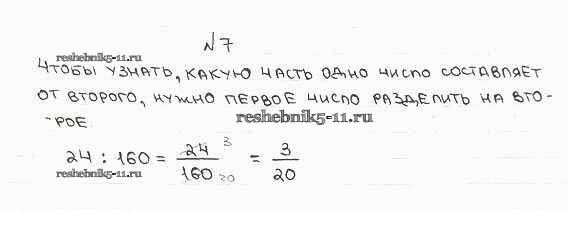 №7
reshebnik5-11.ru
Чтобы узнать, какую часть одно число составляет
от второго, нужно первое число разделить на вто-
рое.
reshebnik5-11.ru
24 : 160 = 24/160 3 20 = 3/20
reshebnik5-11.ru